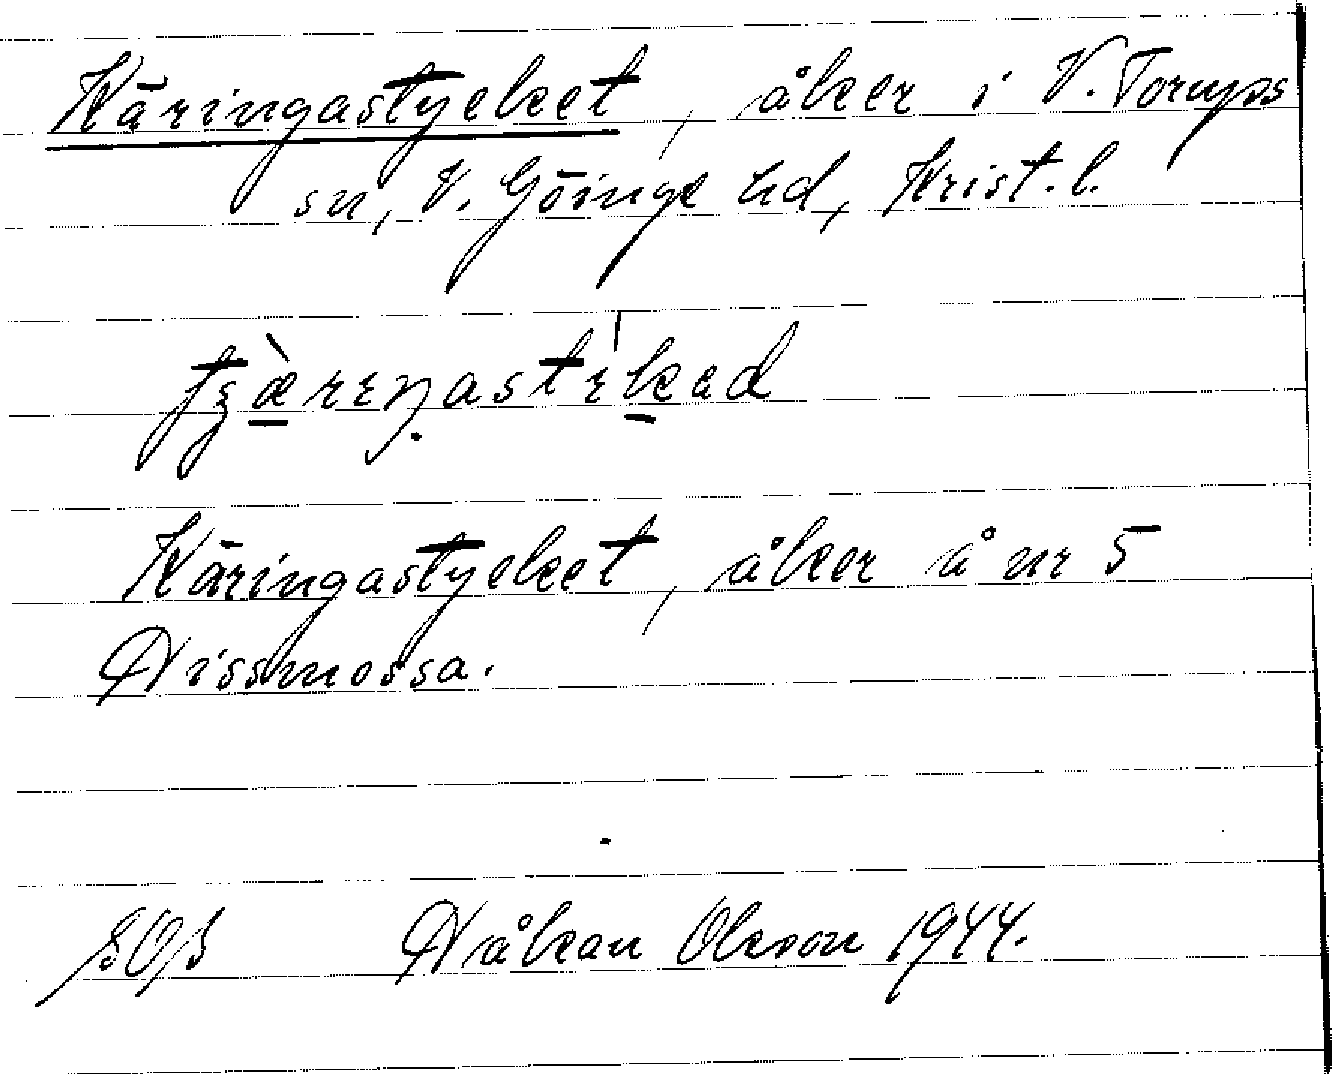 Käringastycket, åker i V. Torups
sn, V. Göinge hd, Krist. l.
Käringastycket, åker å nr 5
Hissmossa.
Håkan Olsson 1944.